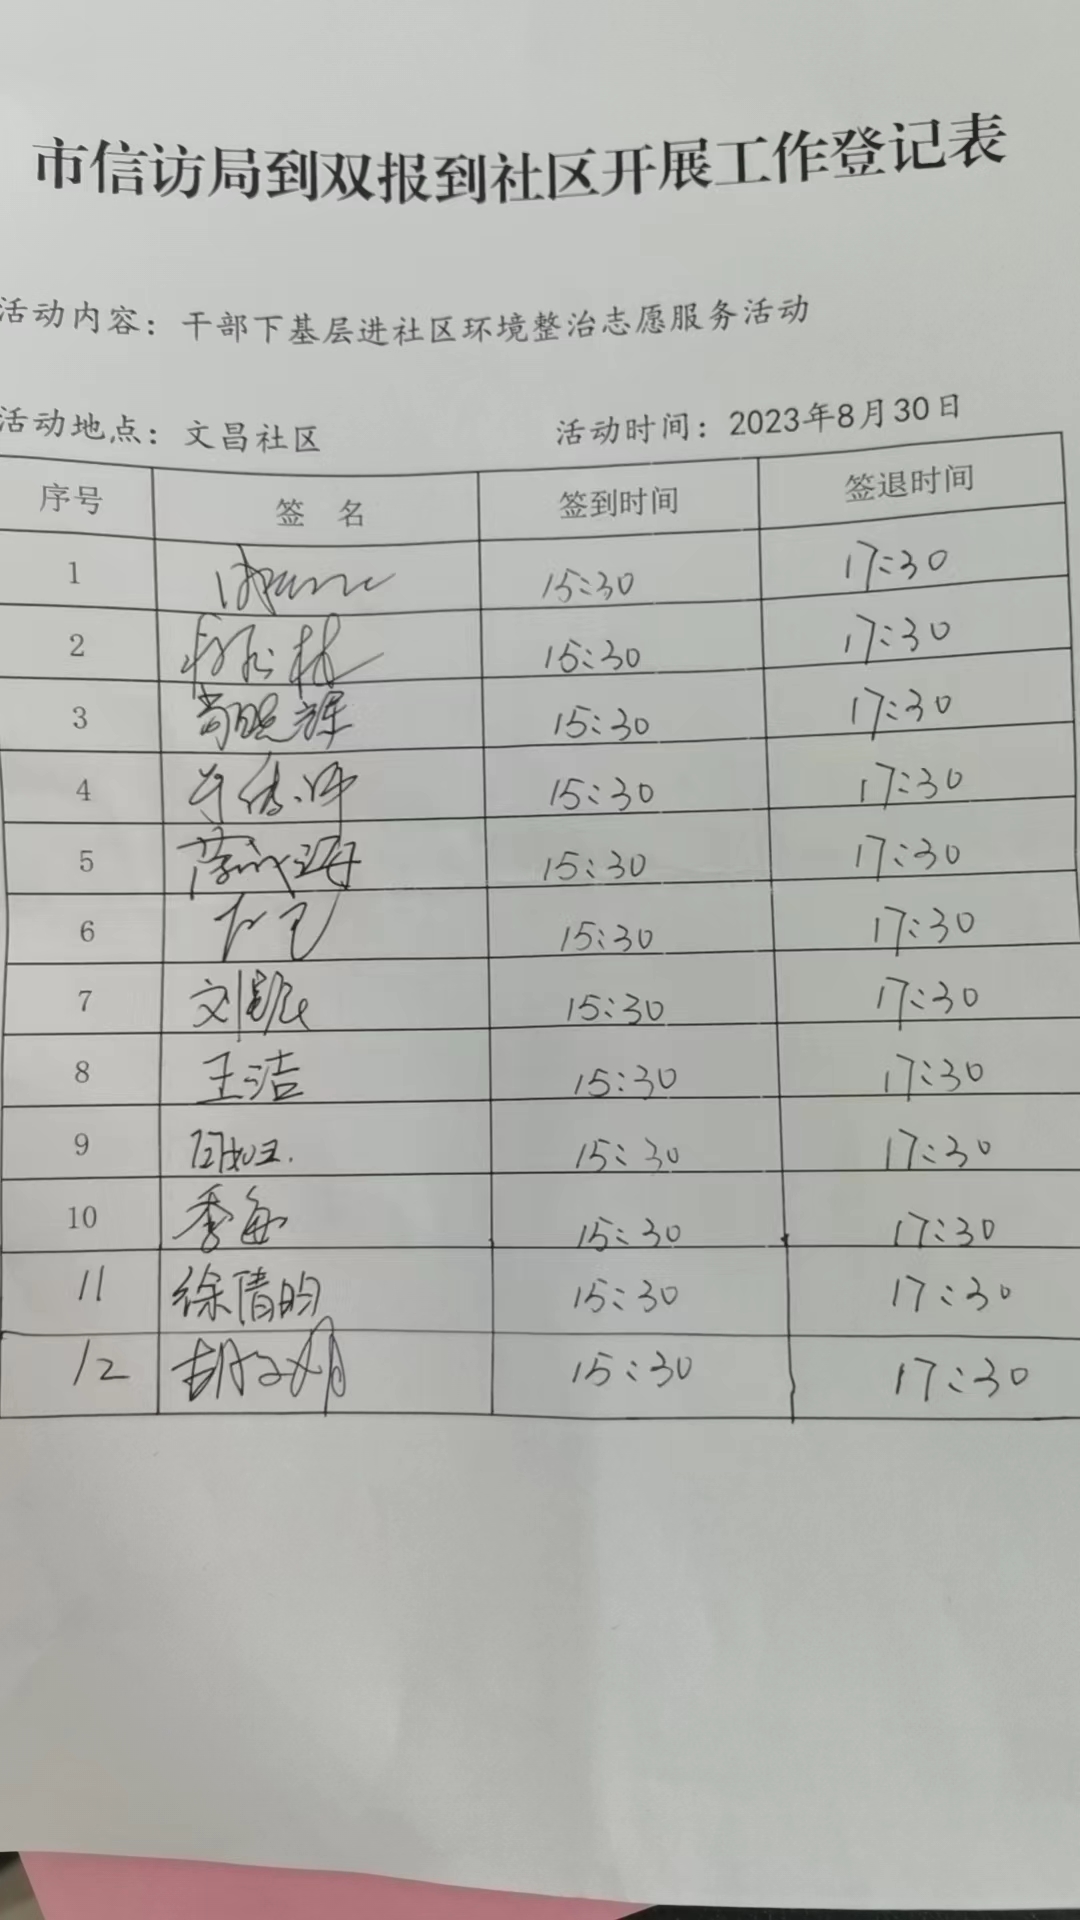 市信访局到双报到社区开展工作登记表
活动内容：干部下基层进社区环境整治志愿服务活动
活动地点：文昌社区 活动时间：2023年8月30日
序号 签 名 签到时间 签退时间
1 15:30 17:30
2 15:30 17:30
3 尚晓辉 15:30 17:30
4 15:30 17:30
5 15:30 17:30
6 15:30 17:30
7 15:30 17:30
8 王洁 15:30 17:30
9 15:30 17:30
10 季每 15:30 17:30
11 徐倩昀 15:30 17:30
12 15:30 17:30